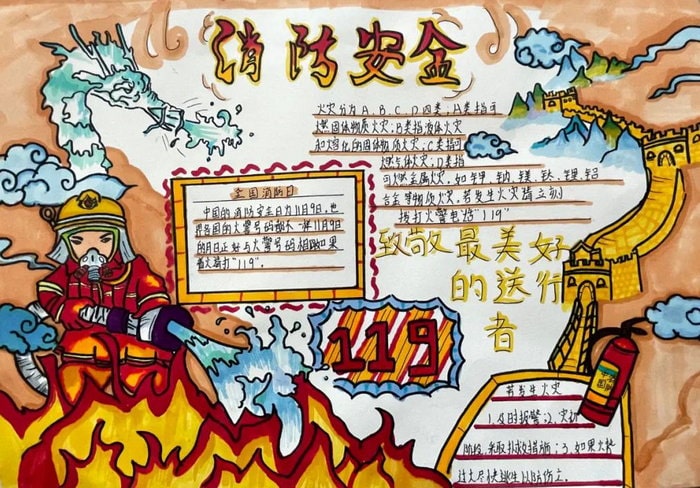 消防安全
火灾分为A、B、C、D四类:A类指可
燃固体物质火灾;B类指液体火灾
和熔化的固体物质火灾;C类指可
燃气体火灾;D类指
可燃金属火灾,如钾、钠、镁、钛、锂、铝
合金等物质火灾。若发生火灾请立刻
拨打火警电话"119"
全国消防日
中国的消防安全日为11月9日,世
界各国的火警号码都不一样11月9日
的月日正好与火警号码相同如果
着火请打"119"。
致敬最美好
的逆行
者
119
若发生火灾
1.及时报警;2.灾初
阶段,采取扑救措施;3.如果火势
过大尽快逃生以防伤亡。
中国